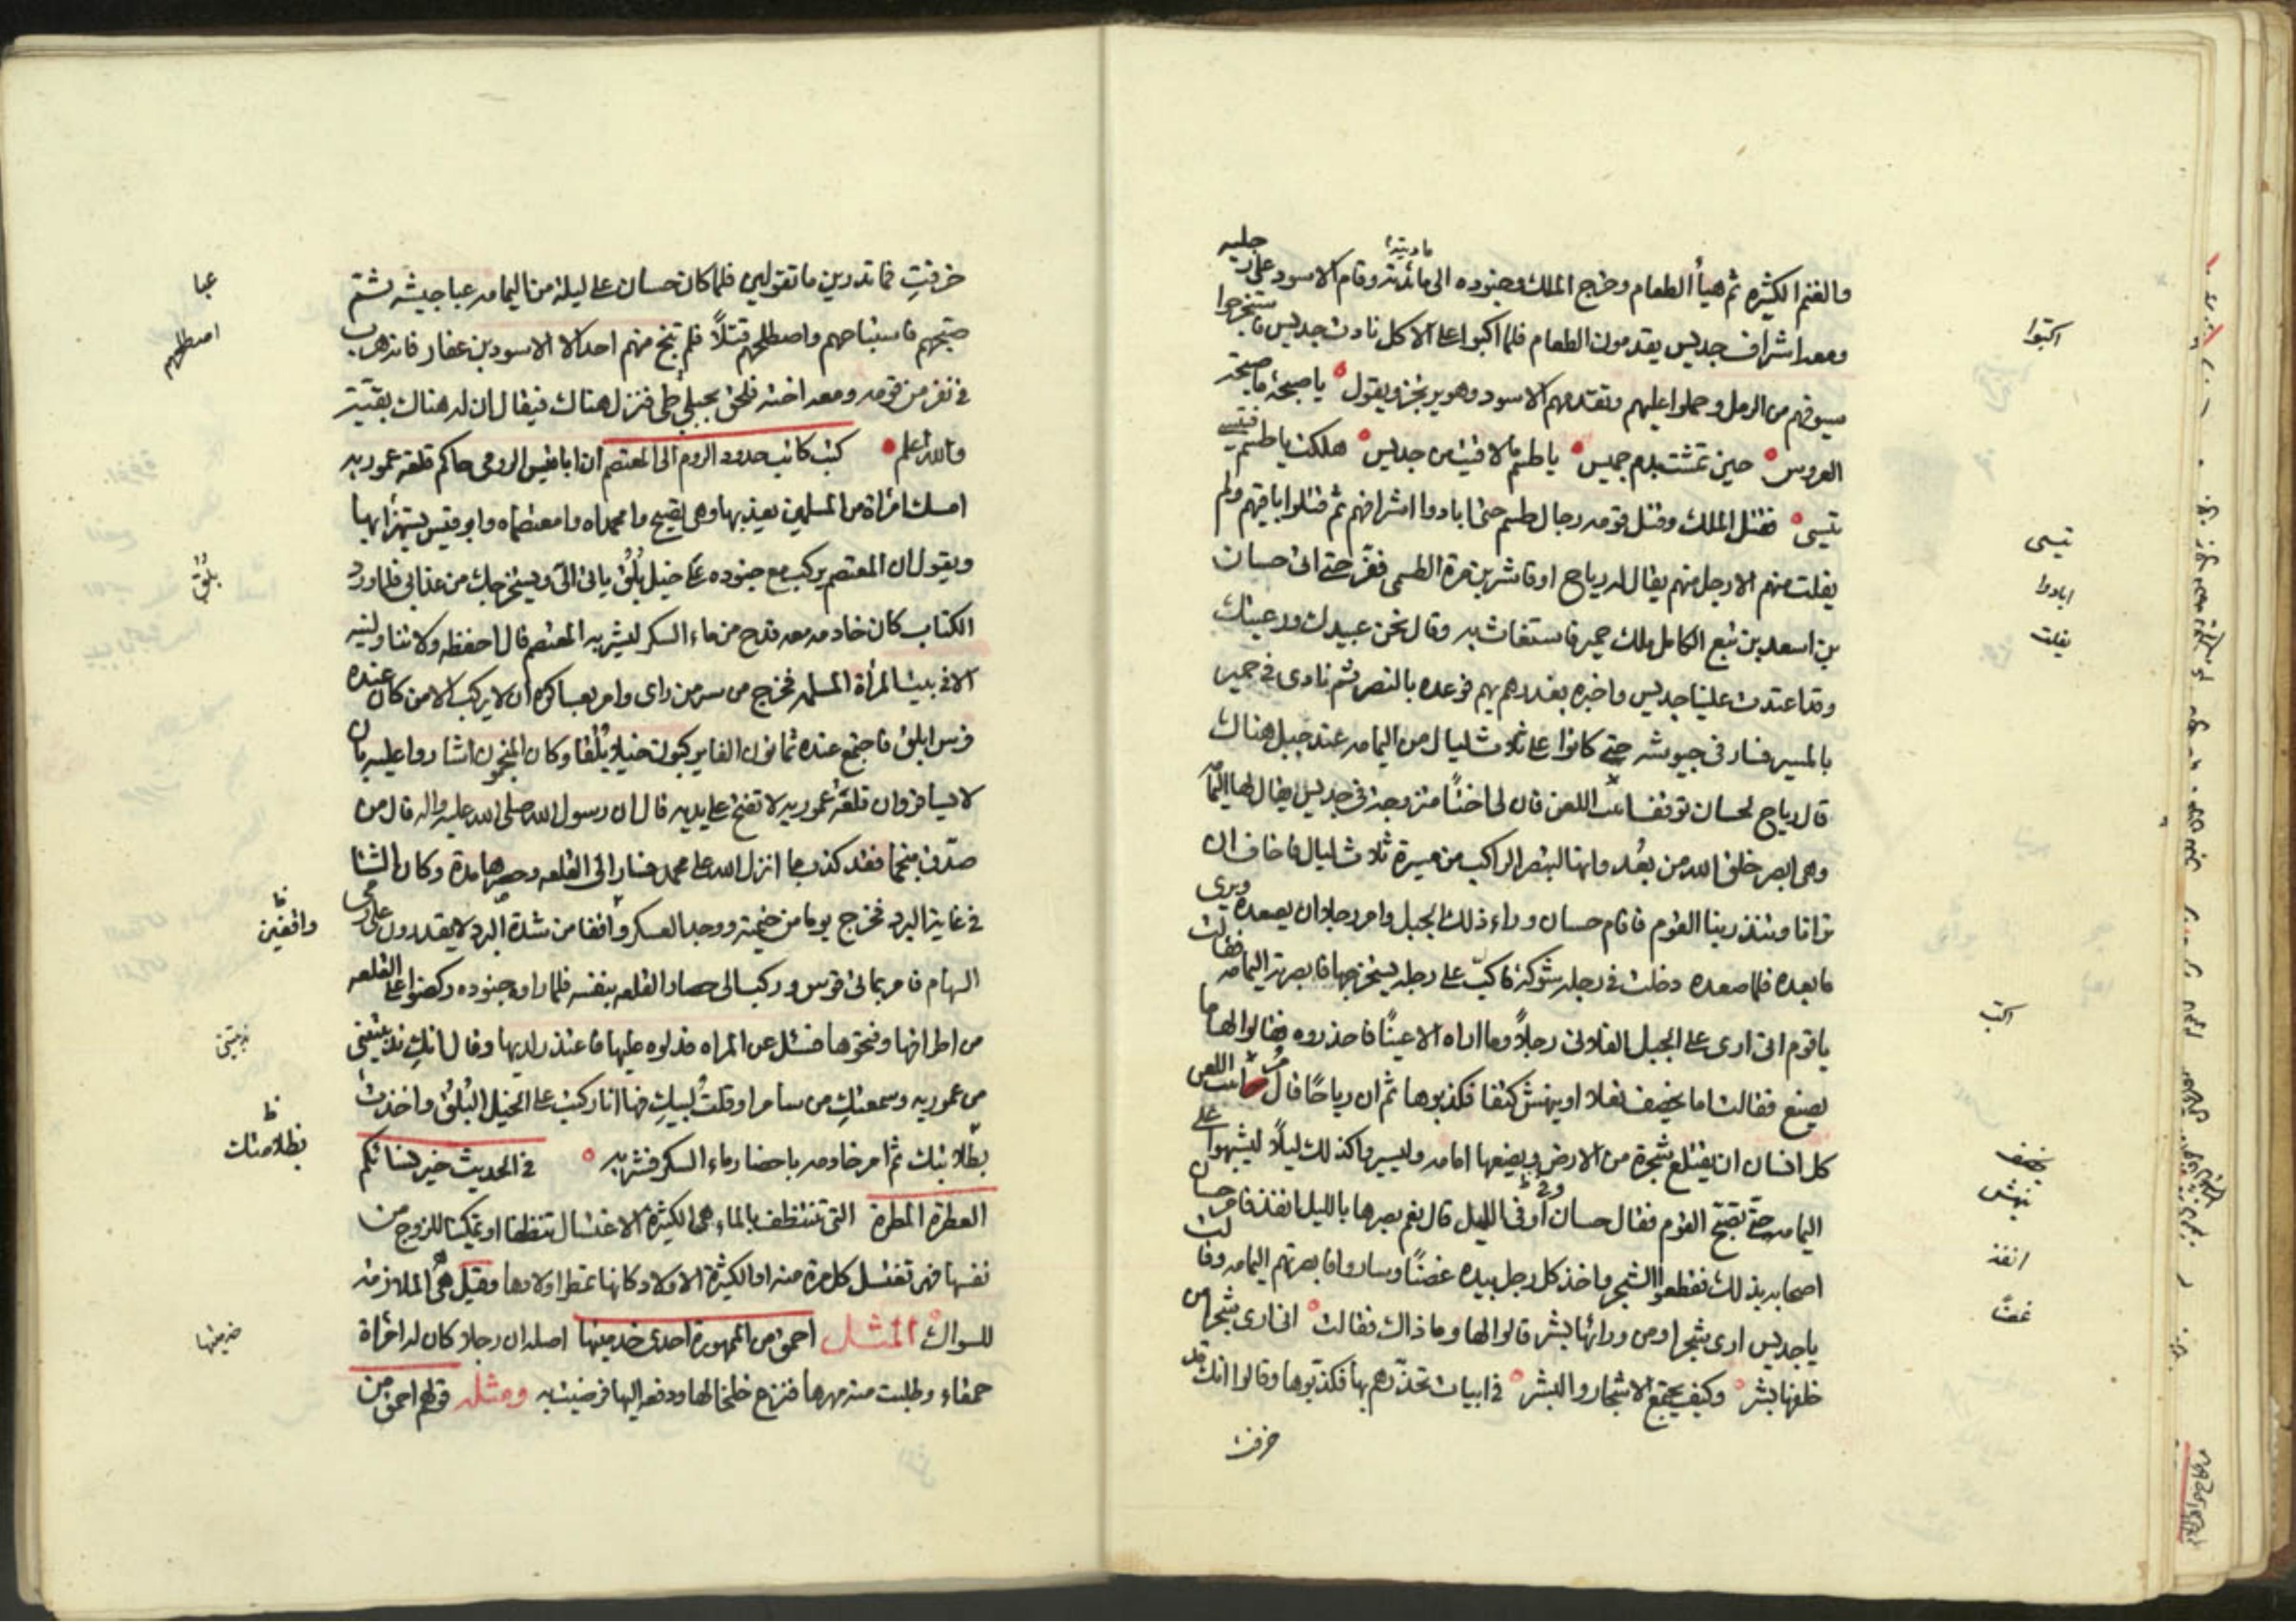 والغنم الكثيره ثم هيأ الطعام وخرج الملك وجنوده الى مائدته وقام الاسود على رجليه
مأدبته
ومعه اشراف جديس يقدمون الطعام فلما اكبوا على الاكل نادت جديس فاستخرجوا
سيوفهم من الرمل وحملوا عليهم وتقدمهم الاسود وهو يرتجز ويقول يا صبحة ما صبحة
العروس حين تمشت بدم جميس يا طسم ما لاقيت من جديس هلكت يا طسم فتيسى
تيسى فقتل الملك وقتل قومه رجال طسم حتى ابادوا اشرافهم ثم قتلوا باقيهم ولم
يفلت منهم الا رجل منهم يقال له رياح او قاشر بن مرة الطسمى ففر حتى اتى حسان
بن اسعد بن تبع الكامل ملك حمير فاستغاث به وقال نحن عبيدك ورعيتك
وقد اعتدت علينا جديس واخبره بغدرهم بهم فوعده بالنصر ثم نادى فى حمير
بالمسير فسار فى جيوشه حتى كانوا على ثلاث ليال من اليمامه عند جبل هناك
قال رياح لحسان توقف ابيت اللعن فان لى اختاً متزوجة فى جديس يقال لها اليمامه
وهى ابصر خلق الله من بعد وانها لتبصر الراكب من مسيرة ثلاث ليال فاخاف ان
ترانا وتنذر بنا القوم فاقام حسان وراء ذلك الجبل وامر رجلا ان يصعده ويرى
ما بعده فلما صعده دخلت فى رجله شوكة فاكبّ على رجله يستخرجها فابصرته اليمامه فقالت
يا قوم انى ارى على الجبل الفلانى رجلاً وما اراه الا عيناً فاحذروه فقالوا لها ما
يصنع فقالت اما يخصف نعلا او ينهش كتفا فكذبوها ثم ان رياحًا قال مر ابيت اللعن
كل انسان ان يقتلع شجرة من الارض ويضعها امامه وليسيروا كذلك ليلاً ليشبهوا على
اليمامه حتى نصبّح القوم فقال حسان أوفى الليل قال نعم بصرها بالليل انفذ فامر حسان
اصحابه بذلك فقطعوا الشجر واخذ كل رجل بيده غصنًا وساروا فابصرتهم اليمامه وقالت
يا جديس ارى شجرا ومن ورائها بشر قالوا لها وما ذاك فقالت انى ارى شجرا من
خلفها بشر وكيف يجتمع الاشجار والبشر فى ابيات تحذّرهم بها فكذبوها وقالوا انك قد
خرفت
اكبّوا
تيسى
ابادوا
يفلت
اكبّ
يخصف
ينهش
انفذ
غصنًا
خرفتِ فما تدرين ما تقولين فلما كان حسان على ليلة من اليمامه عبا جيشه ثم
صبّحهم فاستباحهم واصطلمهم قتلاً فلم ينج منهم احد الا الاسود بن عفار فانه هرب
فى نفر من قومه ومعه اخته فلحق بجبلى طى فنزل هناك فيقال ان له هناك بقيّة
والله اعلم كتب كاتب حدود الروم الى المعتصم ان ابا قيس الرومى حاكم قلعة عموريه
امسك امرأة من المسلمين يعذبها وهى تصيح وا محمداه وا معتصماه وابو قيس يستهزأ بها
ويقول ان المعتصم يركب مع جنوده على خيل بُلُق ياتى الىّ ويستخرجك من عذابى فلما ورد
الكتاب كان خادمه معه قدح من ماء السكر ليشربه المعتصم قال احفظه ولا تناولنيه
الا فى بيت المرأة المسلمه فخرج من سر من راى وامر بعساكره ان لا يركب الا من كان عنده
فرس ابلق فاجتمع عنده ثمانون الفا يركبون خيلا بُلُقا وكان المنجمون اشاروا عليه بان
لا يسافر وان قلعة عموريه لا تفتح على يديه قال ان رسول الله صلى الله عليه واله قال من
صدّق منجما فقد كذب بما انزل الله على محمد فسار الى القلعه وحصرها مدة وكان الشتا
فى غاية البرد فخرج يوما من خيمته ووجد العسكر واقفا من شدة البرد لا يقدرون على رمى
السهام فامر بمائى قوس وركب الى حصار القلعه بنفسه فلما راوه جنوده ركضوا على القلعه
من اطرافها وفتحوها فسئل عن المراه فدلوه عليها فاعتذر لديها وقال انكِ ندبتينى
من عموريه وسمعتكِ من سامرا وقلت لبيكِ فها انا ركبت على الخيل البُلق واخذت
بظلامتك ثم امر خادمه باحضار ماء السكر فشربه فى الحديث خير نسائكم
العطرة المطرة التى تتنظف بالماء هى الكثيرة الاغتسال تنظفا او تمكينا للزوج من
نفسها فهى تغتسل كل مرة منه او الكثيرة الاولاد كانها تمطر اولادها وقيل هى الملازمة
للسواك المثل احمق من الممهورة احدى خدمتيها اصله ان رجلا كان له امرأة
حمقاء وطلبت منه مهرها فنزع خلخالها ودفعه اليها فرضيت به ومثله قولهم احمق من
عبا
اصطلمهم
بُلُق
ظ
واقفين
ندبتينى
ظ
بظلامتك